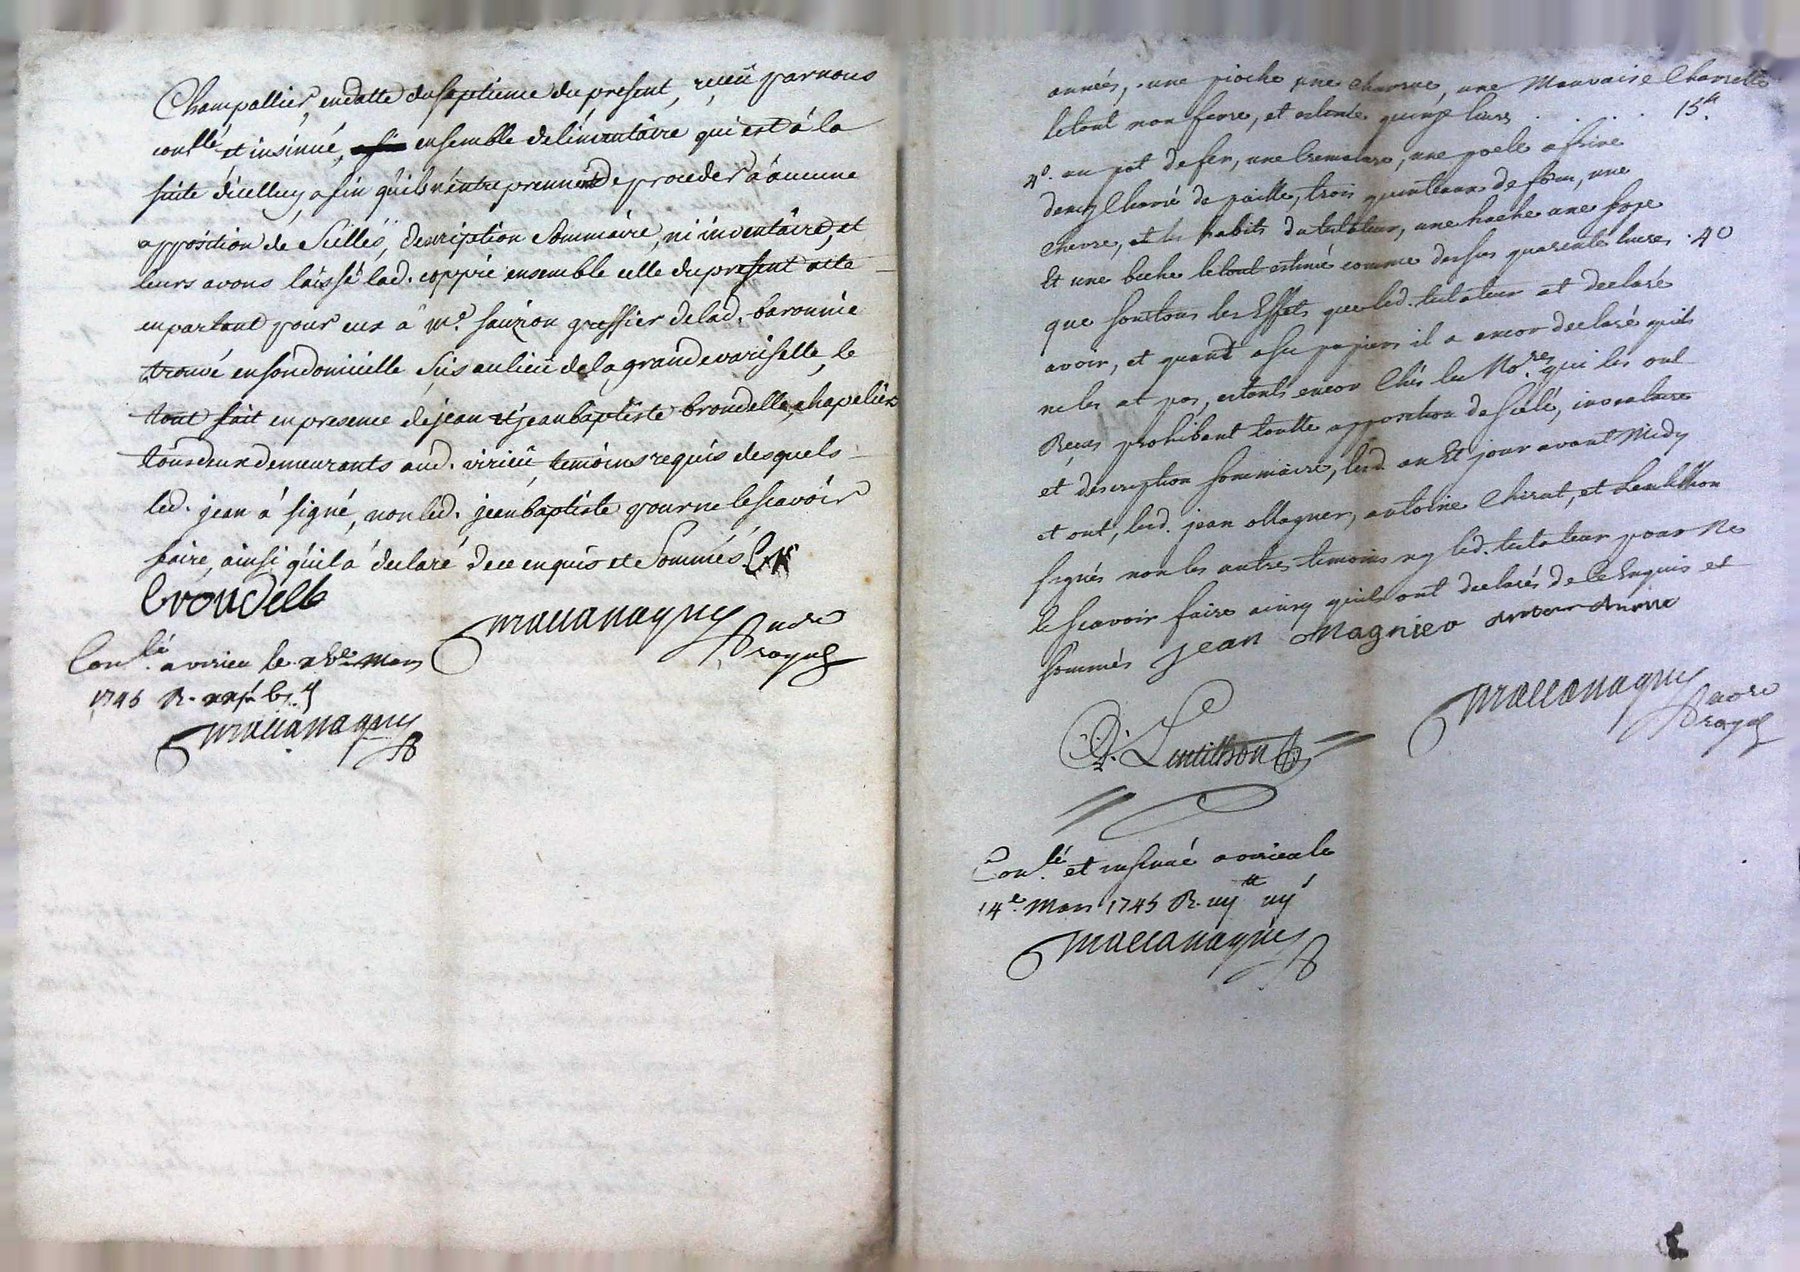 Champallier, en datte du septieme du present, receü par nous
conllé et insinué, ensemble de linventaire qui est á la
suite d'icelluy, afin qu'ils n'entreprennent de proceder á aucune
apposition de scellés, description sommaire, ni inventâire, et
leurs avons laissé lad. coppie ensemble celle du present acte
en partant pour eux á Me. sauzion greffier de lad. baronnie
trouvé en son domicille sis au lieü de la grande variselle, le
tout fait en presence de jean et jean baptiste brondelle, chapeliers
tous deux demeurants aud. virieü, temoins requis desquels
led. jean á signé, non led. jean baptiste pour ne le scavoir
faire, ainsi qu'il á declaré de ce enquis et sommés
brondelle
maccanagny Nore
royal
Conlé. a virieu le Mars
1745 R.
maccanagny
années, une pioche une charrue, une Mauvaise Charrette
le tout non ferré, et estimé quinze livres . . . . 15#
4º. un pot de fer, une Cremaliere, une poele a frire
demy Charré de paille, trois quinteaux de foin, une
chevre, et les habits du tutateur, une hache une
Et une beche le tout estimé comme dessus quarente livres . 40
que sont tous les Effets que led. tutateur at declaré
avoir, et quant a ses papiers il a encor declaré quil
ne les at pas, estants encor Chés les Nores. qui les ont
Receus prohibant toutte apposition de scelé, inventaire
et description sommaire, lesd. an Et jour avant Midy
et ont, lesd. jean Magner, antoine Chirat, et Lentillon
signés non les autres temoins ny led. tutateur pour Ne
le scavoir faire ainsy quils ont declarés de ce Enquis et
sommés Jean Magnier
maccanagny Nore
royal
Lentillon
Conlé. et insinué a virieu le
14e. Mars 1745 R.
maccanagny